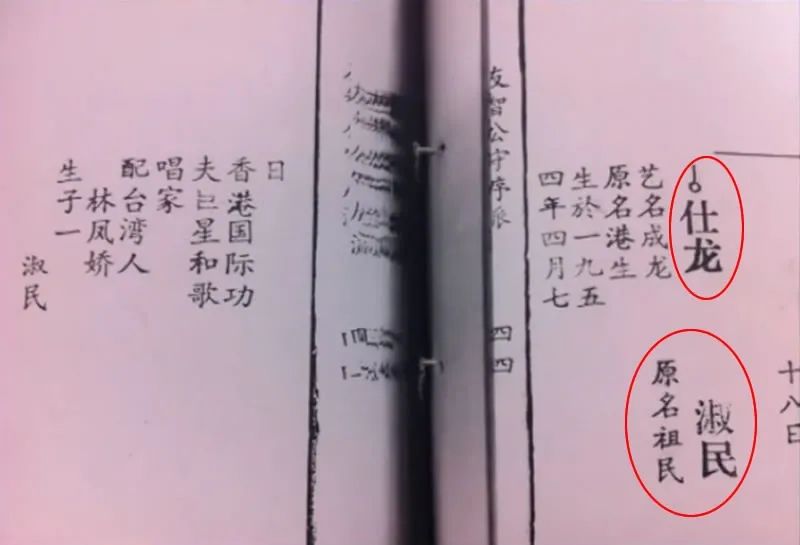 十八日
仕龙
艺名成龙
原名港生
生於一九五
四年四月七
淑民
原名祖民
友智公守序派
四四
日
香港国际功
夫巨星和歌
唱家
配台湾人
林凤娇
生子一
淑民